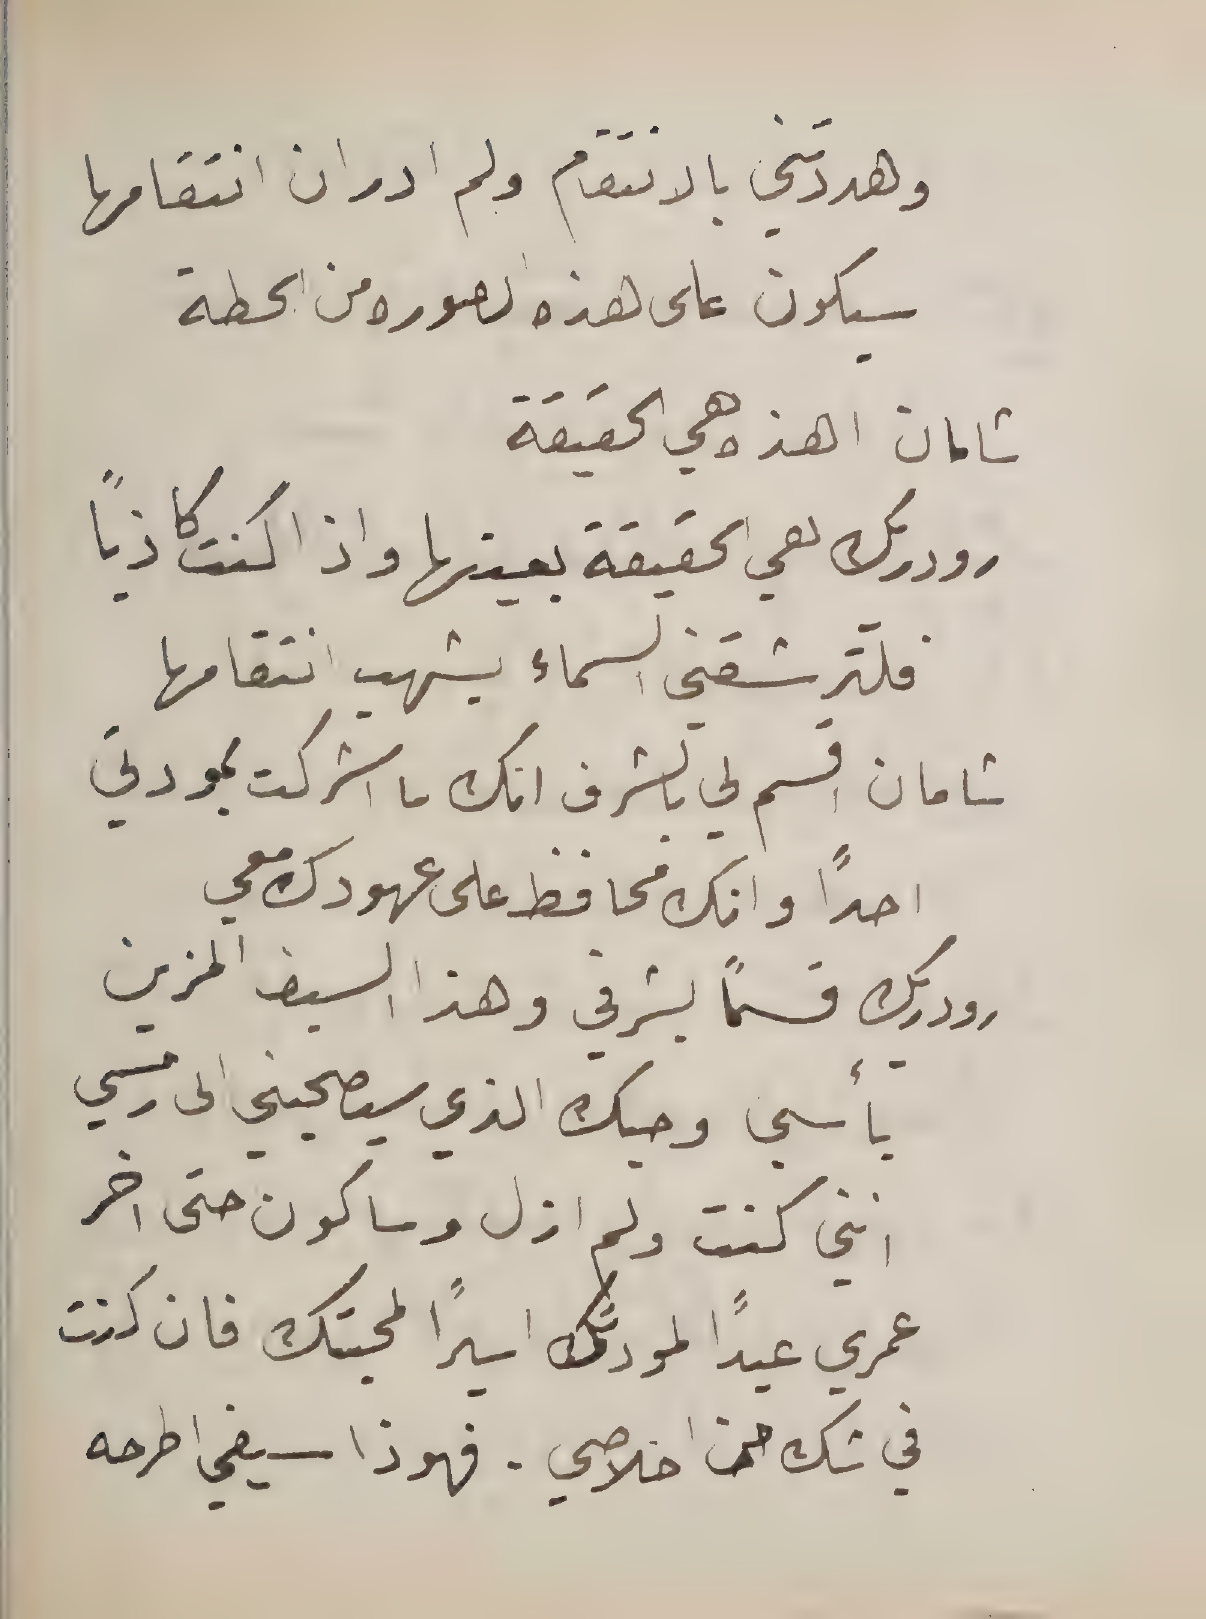 وهددتني بالانتقام ولم ادر ان انتقامها
سيكون على هذه الصوره من الحطة
شامان اهذه هي الحقيقة
رودريك هي الحقيقة بعينها واذا كنت كاذباً
فلترشقني السماء بشهب انتقامها
شامان اقسم لي بالشرف انك ما اشركت بمودتي
احداً وانك محافظ على عهودك معي
رودريك قسماً بشرفي وهذا السيف المزين
يأسي وحبك الذي سيصحبني الى رمسي
انني كنت ولم ازل وساكون حتى اخر
عمري عبداً لمودتك اسيراً لمحبتك فان كنت
في شك من اخلاصي . فهوذا سيفي اطرحه